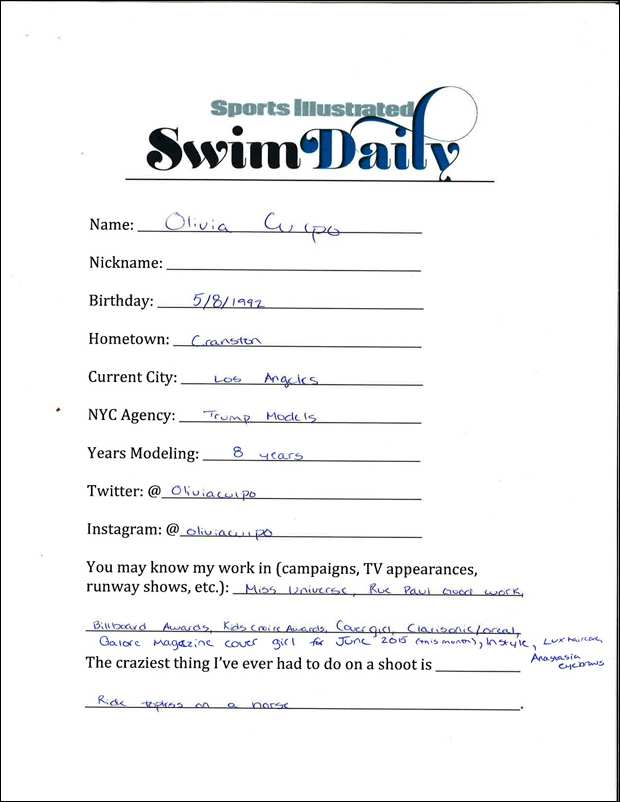 Sports Illustrated
Swim Daily
Name: Olivia Culpo
Nickname:
Birthday: 5/8/1992
Hometown: Cranston
Current City: Los Angeles
NYC Agency: Trump Models
Years Modeling: 8 years
Twitter: @ Oliviaculpo
Instagram: @ oliviaculpo
You may know my work in (campaigns, TV appearances,
runway shows, etc.): Miss Universe, Rue Paul Good work,
Billboard Awards, Kids Choice Awards, Cover girl, Clarisonic/Loreal,
Galore Magazine cover girl for June 2015 (this month), Instyle,
Anastasia
eyebrows
The craziest thing I've ever had to do on a shoot is
Ride topless on a horse.